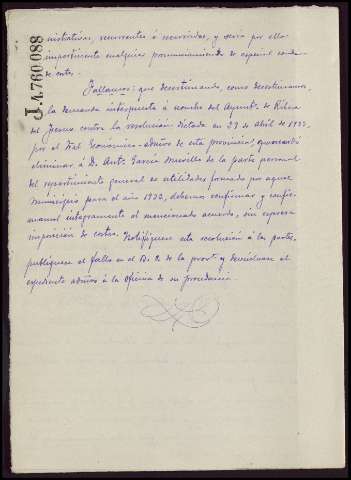 J.4.760.088
nistrativas, recurrentes ó recurridas, y sería por ello
improcedente cualquier pronunciamiento de especial conde-
na de costas.
Fallamos: que desestimando, como desestimamos,
la demanda interpuesta á nombre del Ayunt. de Ribera
del Fresno contra la resolución dictada en 27 de Abril de 1933,
por el Tral Económico-admvo de esta provincia, que acordó
eliminar á D. Antº García de la parte personal
del repartimiento general de utilidades formado por aquel
Municipio para el año 1932, debemos confirmar y confir-
mamos integramente el mencionado acuerdo, sin expresa
imposición de costas. Notifíquese esta resolución á las partes,
publíquese el fallo en el B. O. de la provª y devuélvase el
expediente admvo á la oficina de su procedencia.